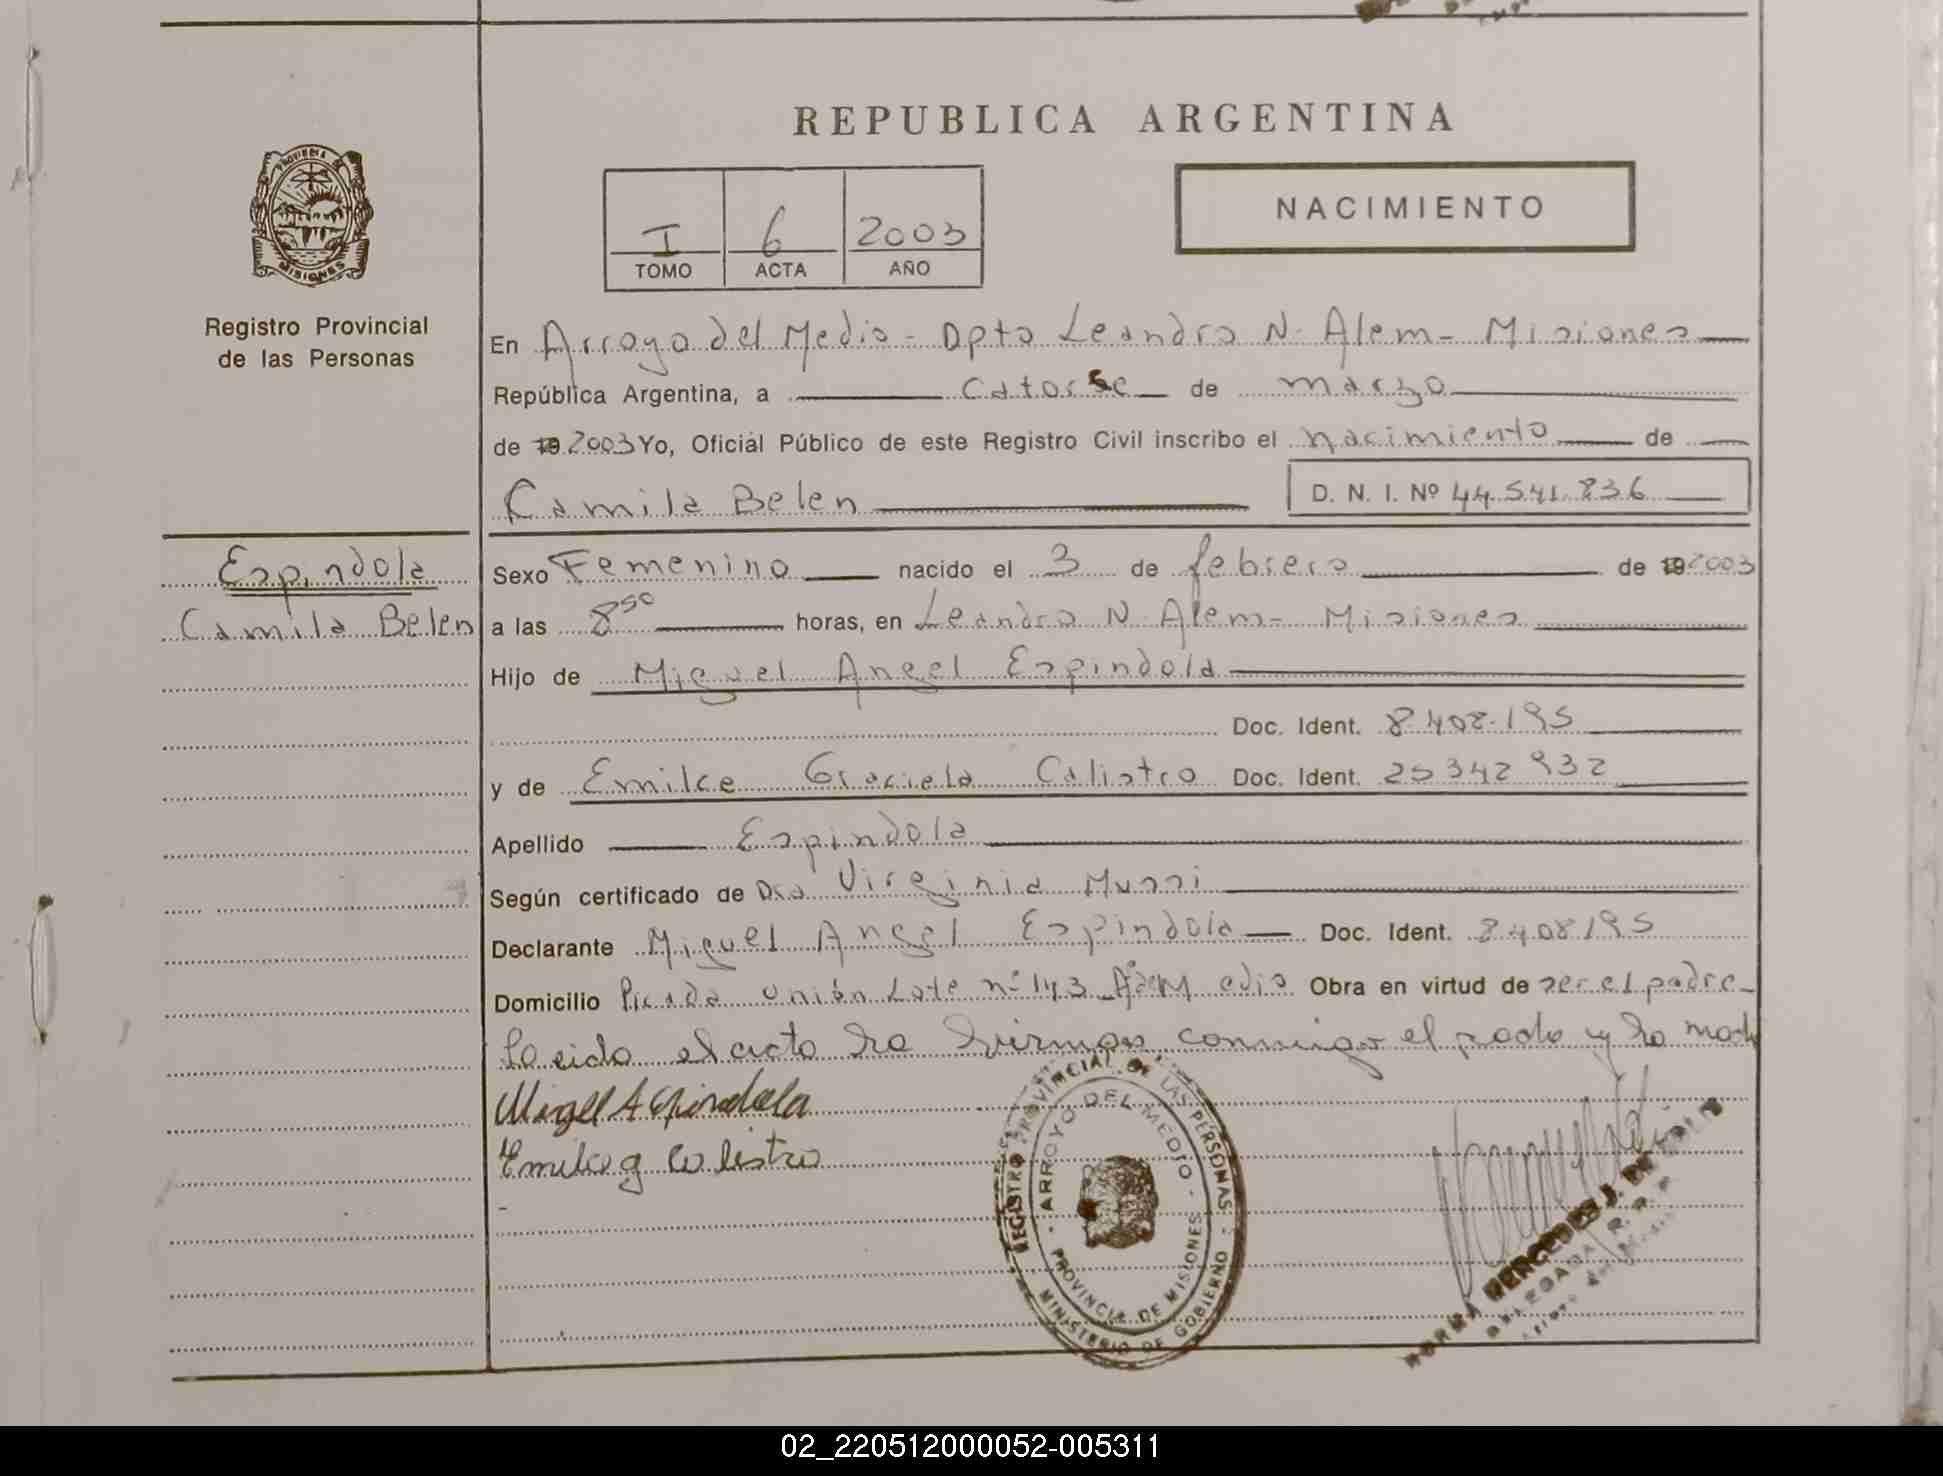 REPUBLICA ARGENTINA
PROVINCIA DE MISIONES
Registro Provincial
de las Personas
I 6 2003
TOMO ACTA AÑO
NACIMIENTO
En Arroyo del Medio - Dpto Leandro N. Alem - Misiones
República Argentina, a catorce de marzo
de 19 2003 Yo, Oficial Público de este Registro Civil inscribo el nacimiento de
Camila Belen D. N. I. Nº 44.541.836
Espindola
Camila Belen
Sexo Femenino nacido el 3 de febrero de 19 2003
a las 8 50 horas, en Leandro N. Alem - Misiones
Hijo de Miguel Angel Espindola
Doc. Ident. 8.408.195
y de Emilce Graciela Calistro Doc. Ident. 25342932
Apellido Espindola
Según certificado de Dra Virginia Mussi
Declarante Miguel Angel Espindola Doc. Ident. 8408195
Domicilio Picada Unión Lote nº 143 Aº del Medio Obra en virtud de ser el padre
Leida el acta la firman conmigo el padre y la madre
Miguel A Espindola
Emilce g Calistro
REGISTRO PROVINCIAL DE LAS PERSONAS
MINISTERIO DE GOBIERNO
ARROYO DEL MEDIO
PROVINCIA DE MISIONES
NORMA MERCEDES J. DE
DELEGADA R. P. P.
Arroyo del Medio
02_220512000052-005311